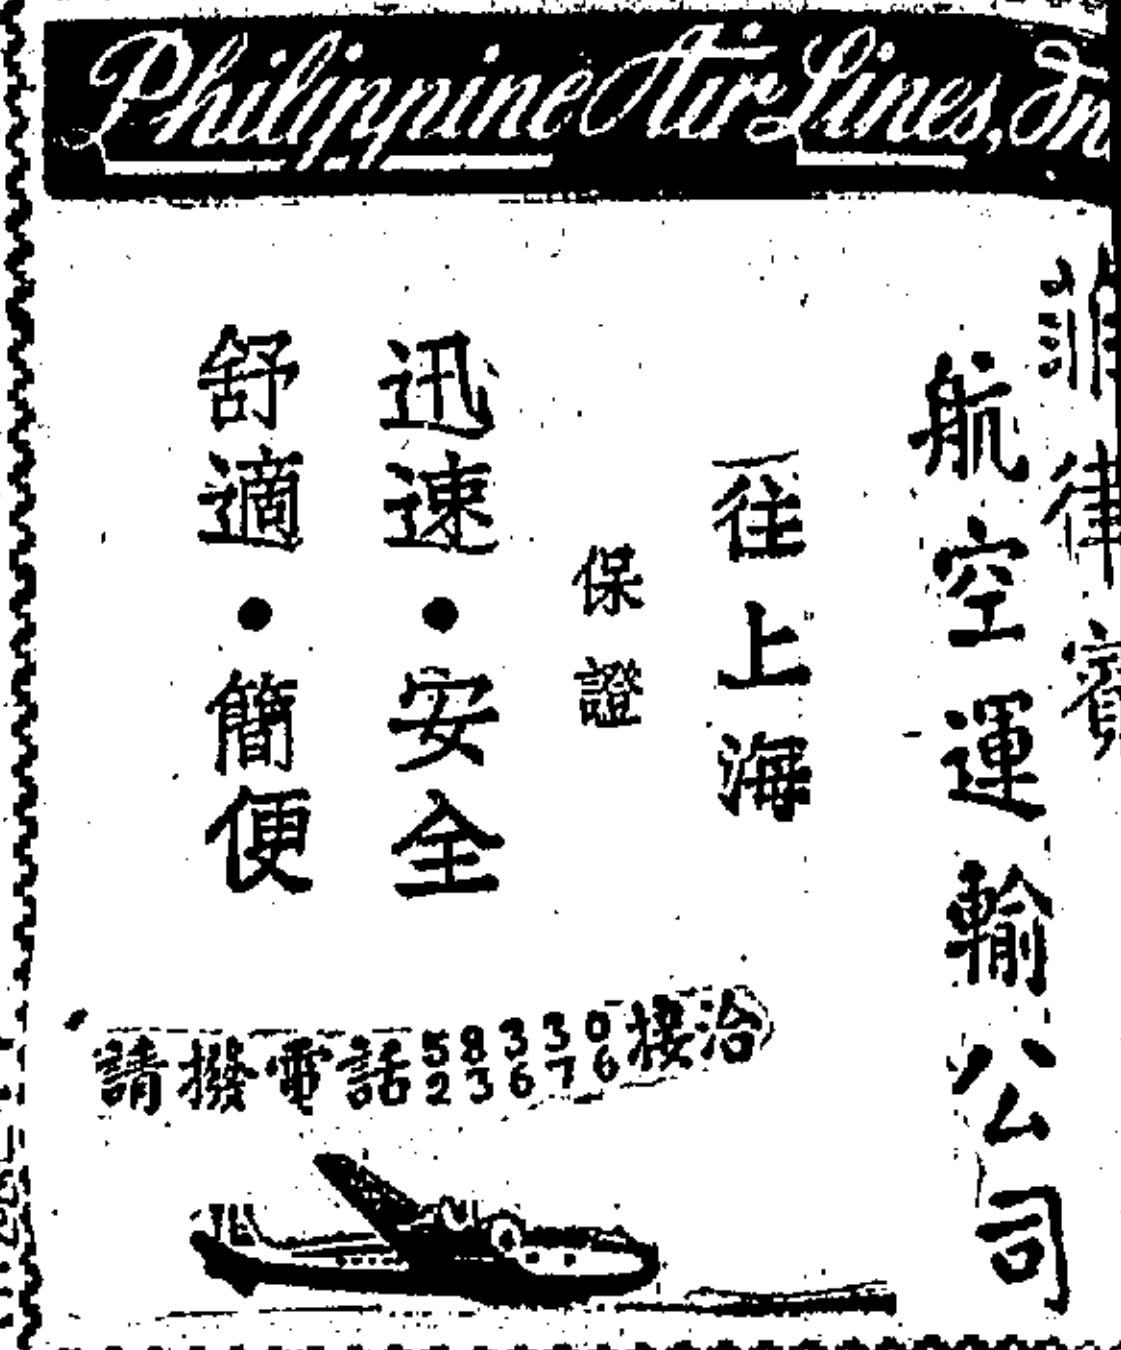 Philippine Air Lines, In
菲律賓
航空運輸公司
往上海
保證
迅速•安全
舒適•簡便
請撥電話58330接洽
23676